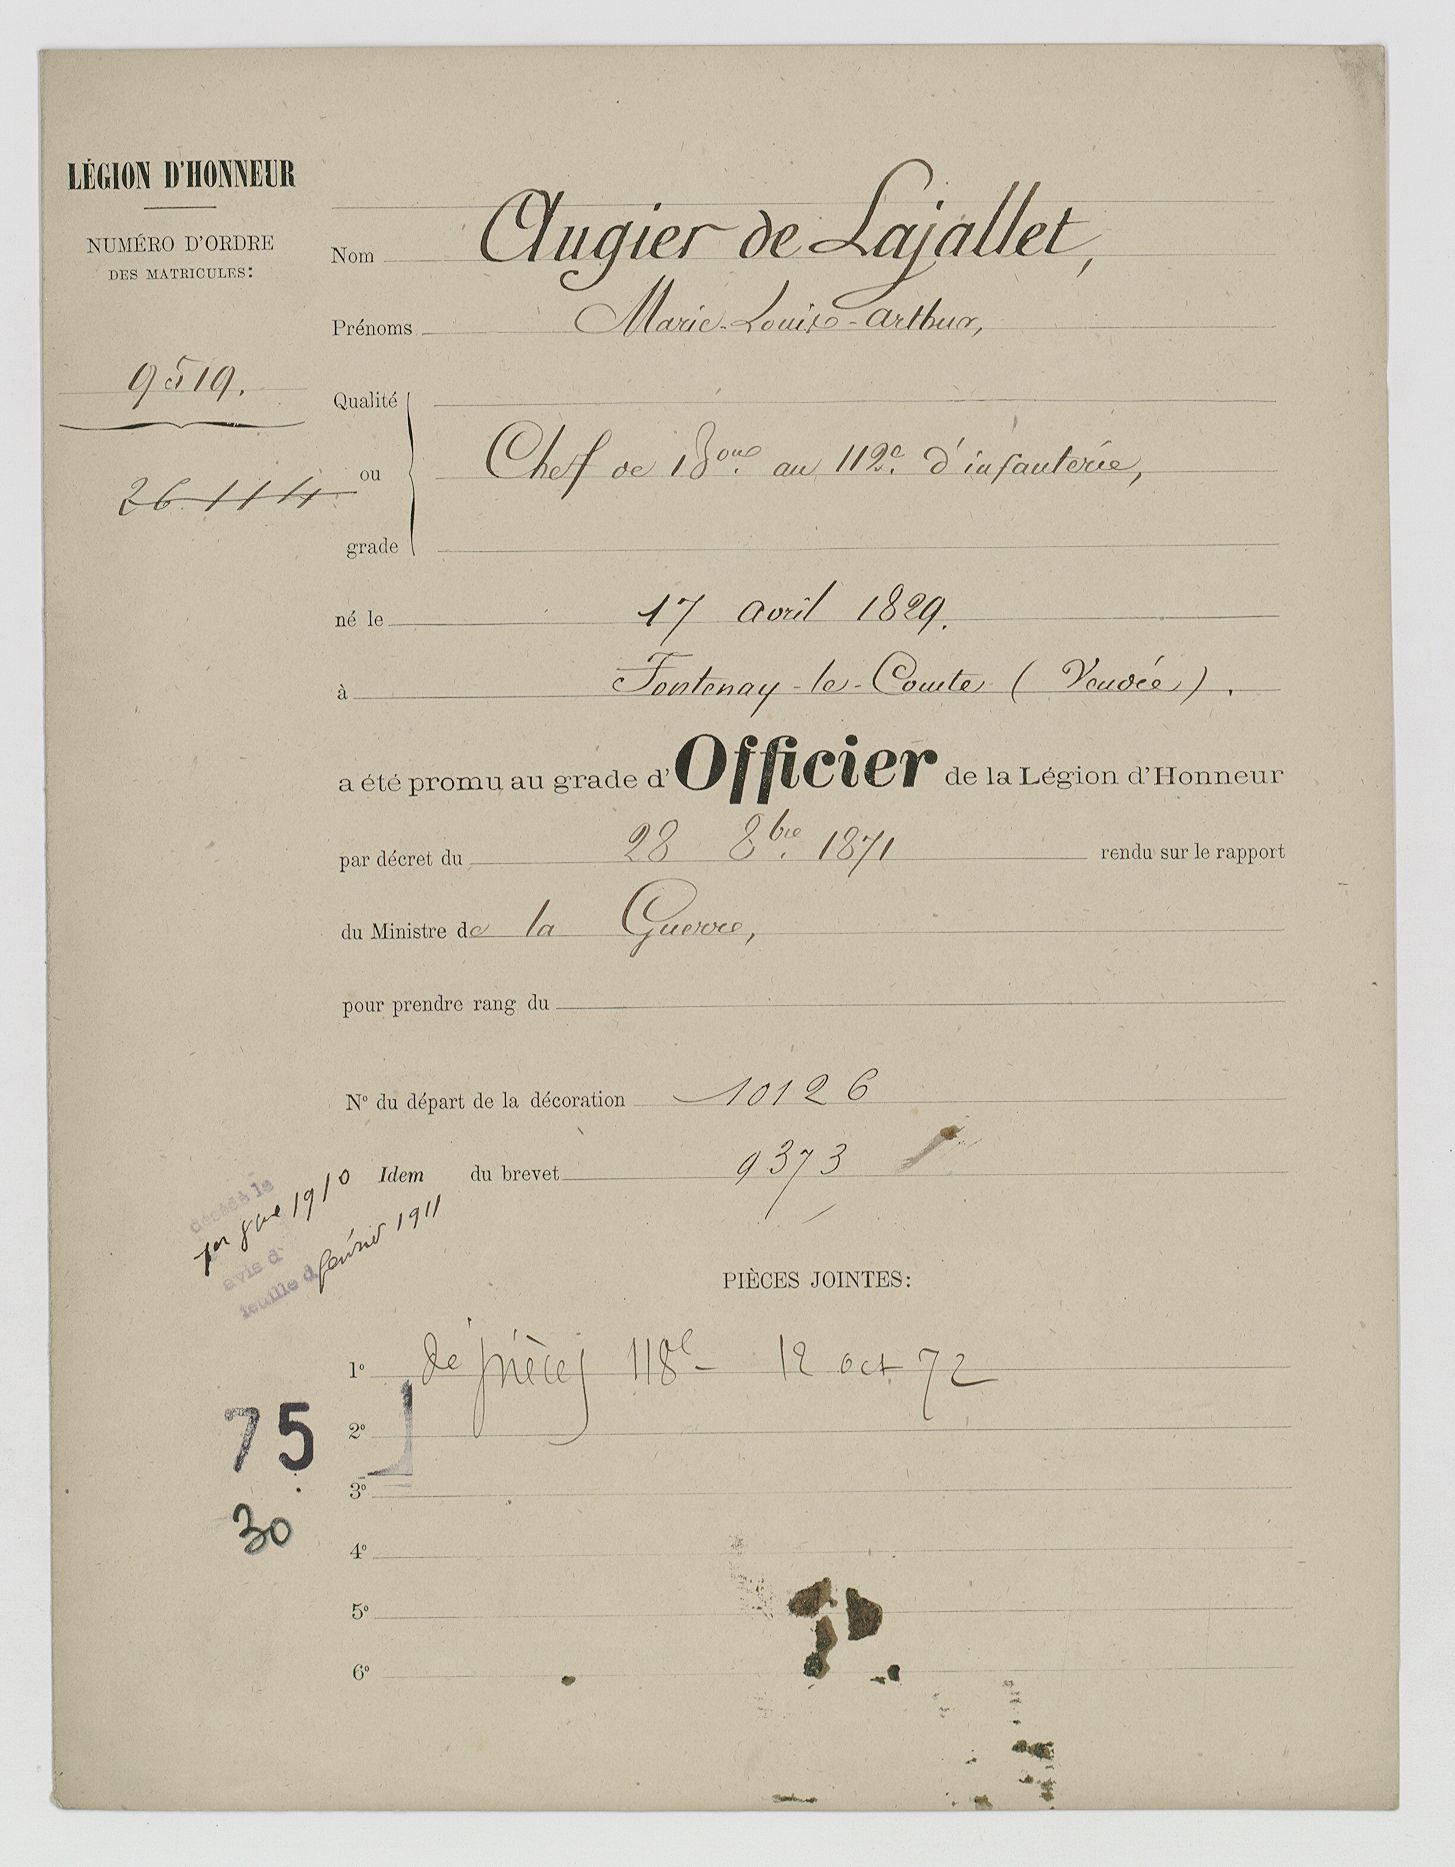 LÉGION D'HONNEUR
NUMÉRO D'ORDRE
DES MATRICULES:
9519.
26114
Nom Augier de Lajallet,
Prénoms Marie-Louis-Arthur,
Qualité
ou
grade
Chef de Bon. au 112e. d'infanterie,
né le 17 avril 1829.
à Fontenay-le-Comte (Vendée).
a été promu au grade d'Officier de la Légion d'Honneur
par décret du 28 8bre. 1871 rendu sur le rapport
du Ministre de la Guerre,
pour prendre rang du
No du départ de la décoration 10126
Idem du brevet 9373
décédé le
1er 8bre 1910
avis d
feuille d février 1911
PIÈCES JOINTES:
1o dé pièces 118e - 12 oct 72
2o
3o
4o
5o
6o
75
30